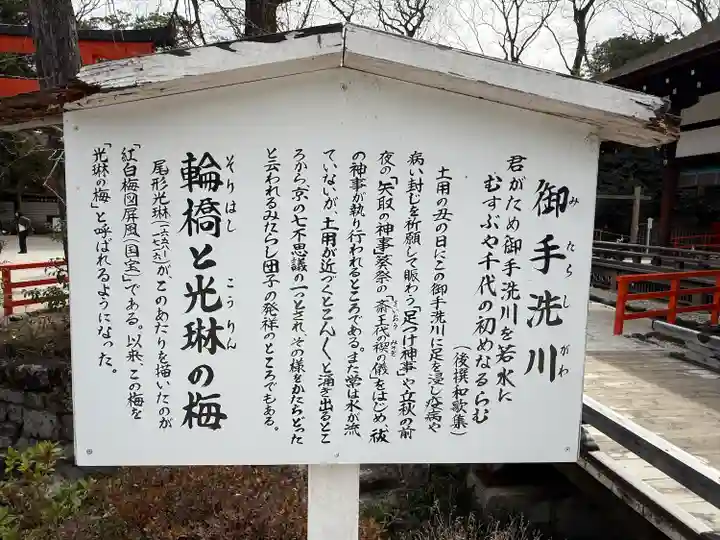 御手洗川
みたらしがわ
君がため御手洗川を若水に
むすぶや千代の初めなるらむ
（後撰和歌集）
土用の丑の日にこの御手洗川に足を浸し疫病や
病い封じを祈願して賑わう「足つけ神事」や立秋の前
夜の「矢取の神事」、葵祭の「斎王代の禊の儀」をはじめ、祓
さいおう みそぎ
の神事が執り行われるところである。また常は水が流
れていないが、土用が近づくとこんこんと湧き出るとこ
ろから、京の七不思議の一つとされ、その様をかたどった
と云われるみたらし団子の発祥のところでもある。
輪橋と光琳の梅
そりはし こうりん
尾形光琳（一六五八〜一七一六）が、このあたりを描いたのが
「紅白梅図屏風（国宝）」である。以来、この梅を
「光琳の梅」と呼ばれるようになった。